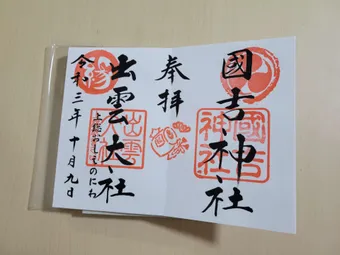 國吉神社
國吉
神社
奉拝
出雲大社
出雲
大社
上総おしえのにわ
令和三年十月九日